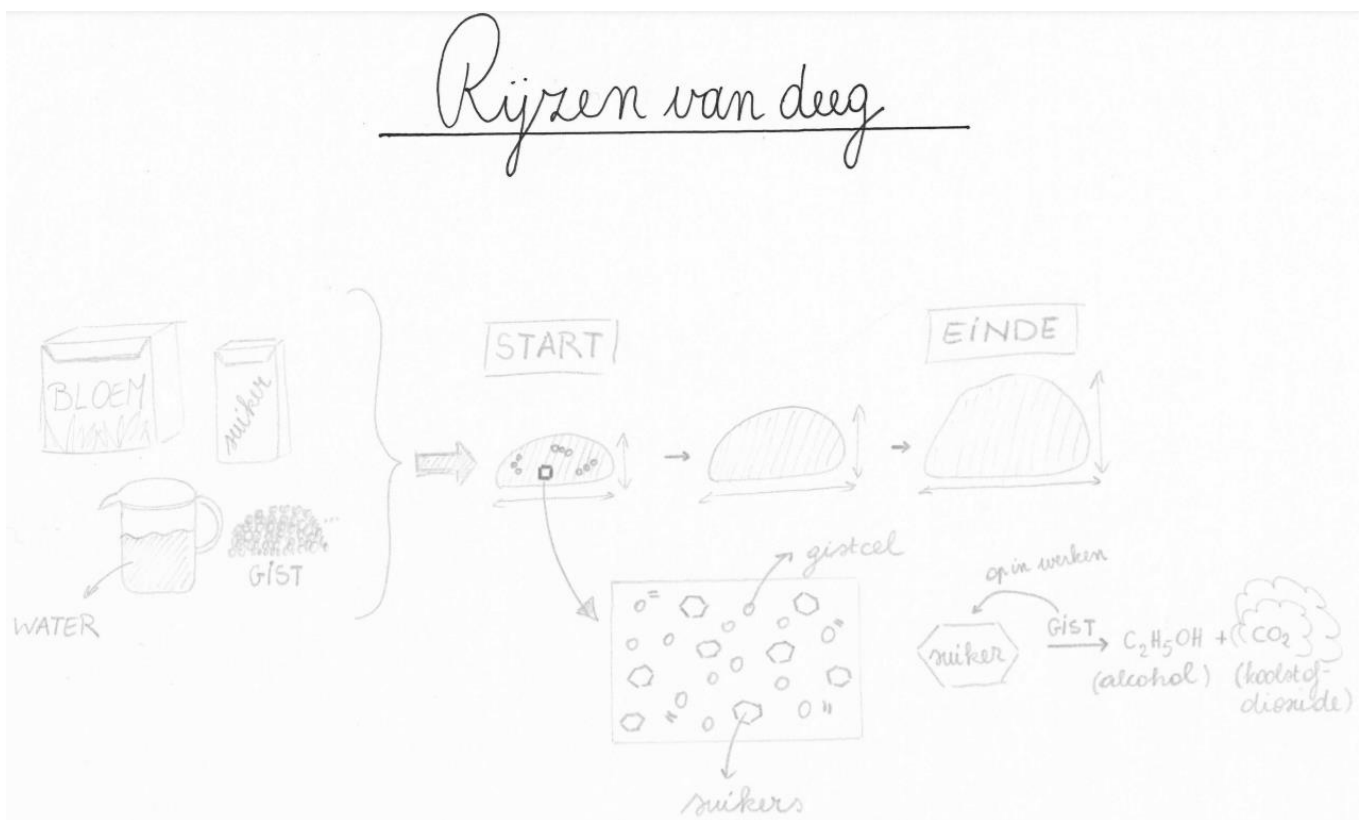 Rijzen van deeg
BLOEM
suiker
WATER
GIST
START
EINDE
gistcel
suikers
op in werken
suiker
GIST
C₂H₅OH + CO₂
(alcohol) (koolstof-
dioxide)